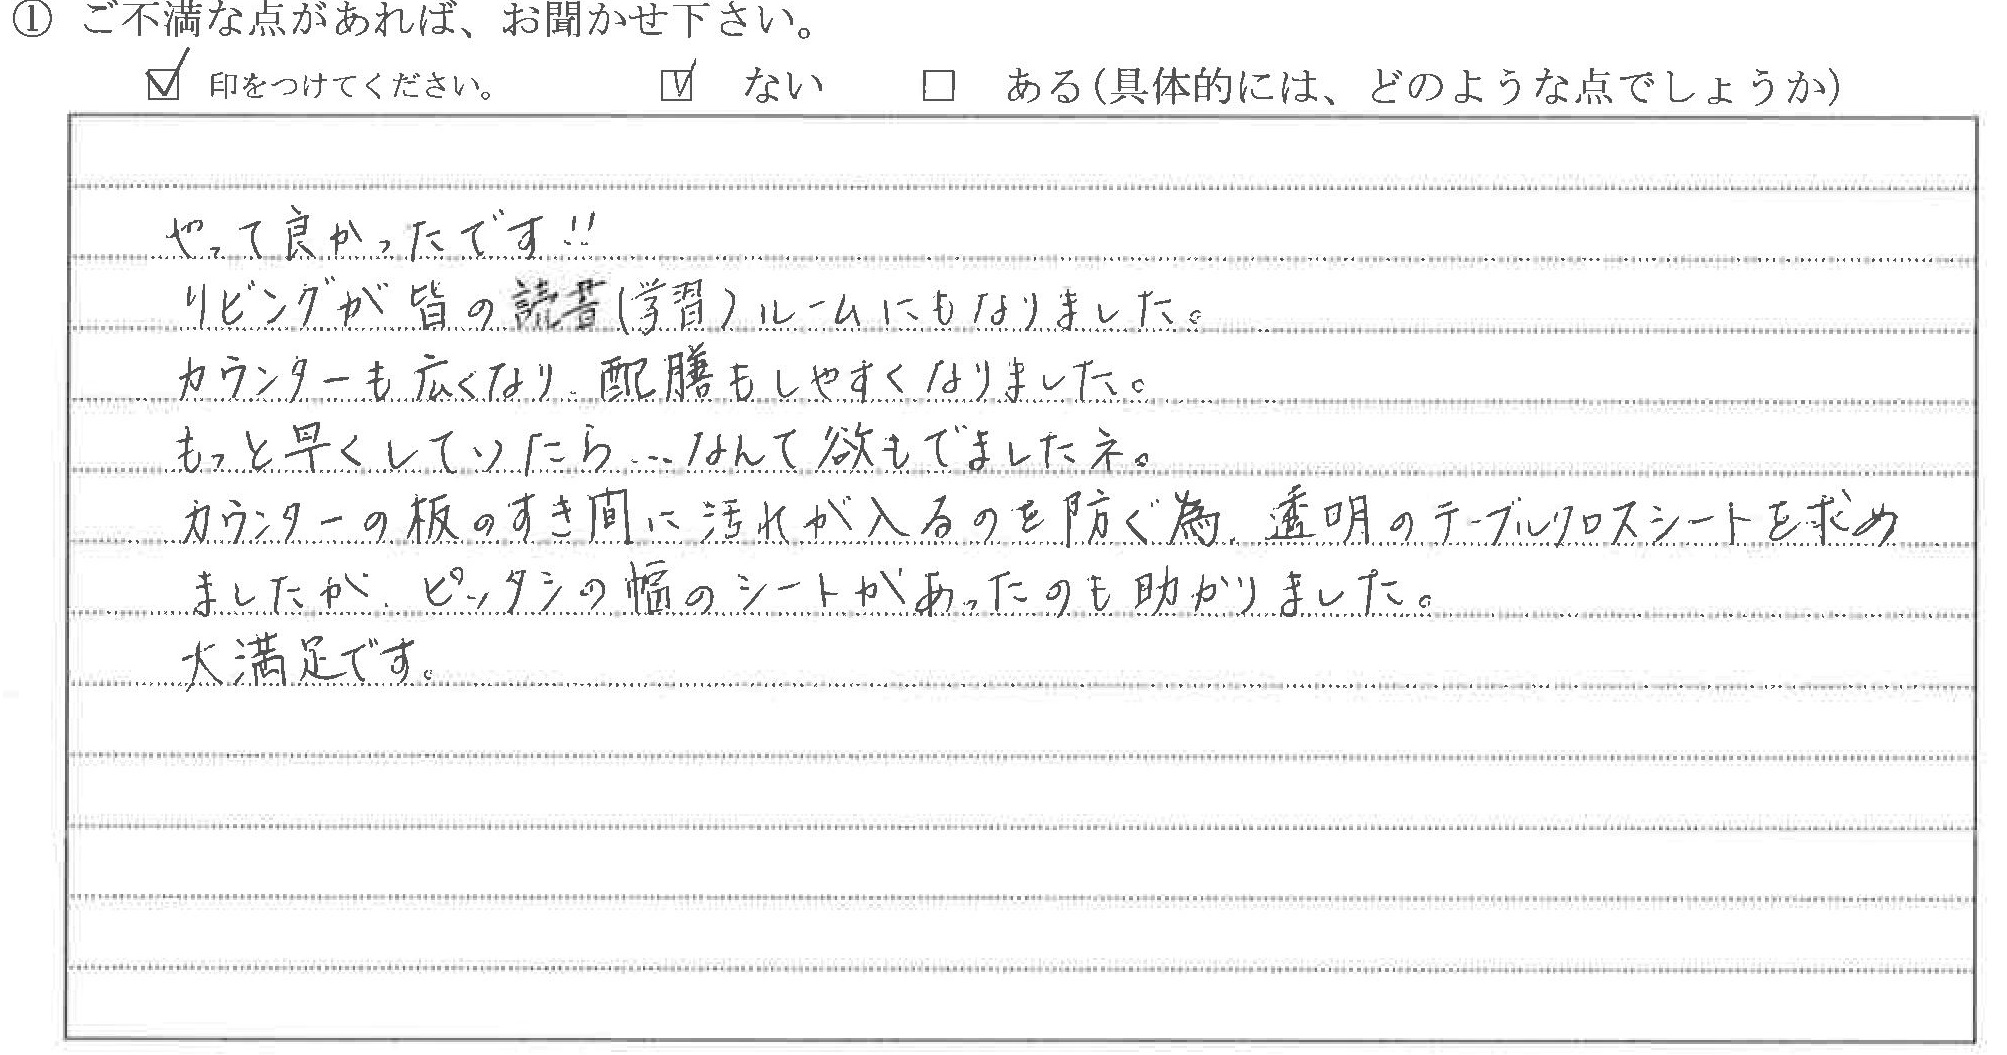 ① ご不満な点があれば、お聞かせ下さい。
☑ 印をつけてください。 ☑ ない □ ある(具体的には、どのような点でしょうか)
やって良かったです!!
リビングが皆の読書(学習)ルームにもなりました。
カウンターも広くなり、配膳もしやすくなりました。
もっと早くしていたら…なんて欲もでましたネ。
カウンターの板のすき間に汚れが入るのを防ぐ為、透明のテーブルクロスシートを求め
ましたが、ピッタシの幅のシートがあったのも助かりました。
大満足です。